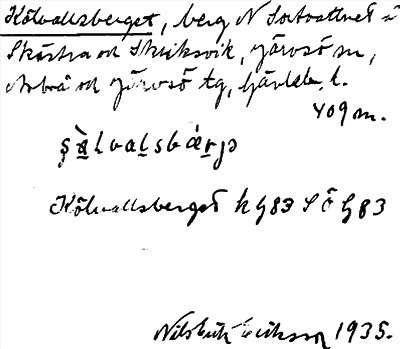 Kölvallsberget, berg N Sortvattnet i
Skästra och Skriksvik, Järvsö sn,
Arbrå och Järvsö tg, Gävleb. l.
409 m.
Kölvallsberget h G83 S Ö G83
Nils Erik Eriksson 1935.